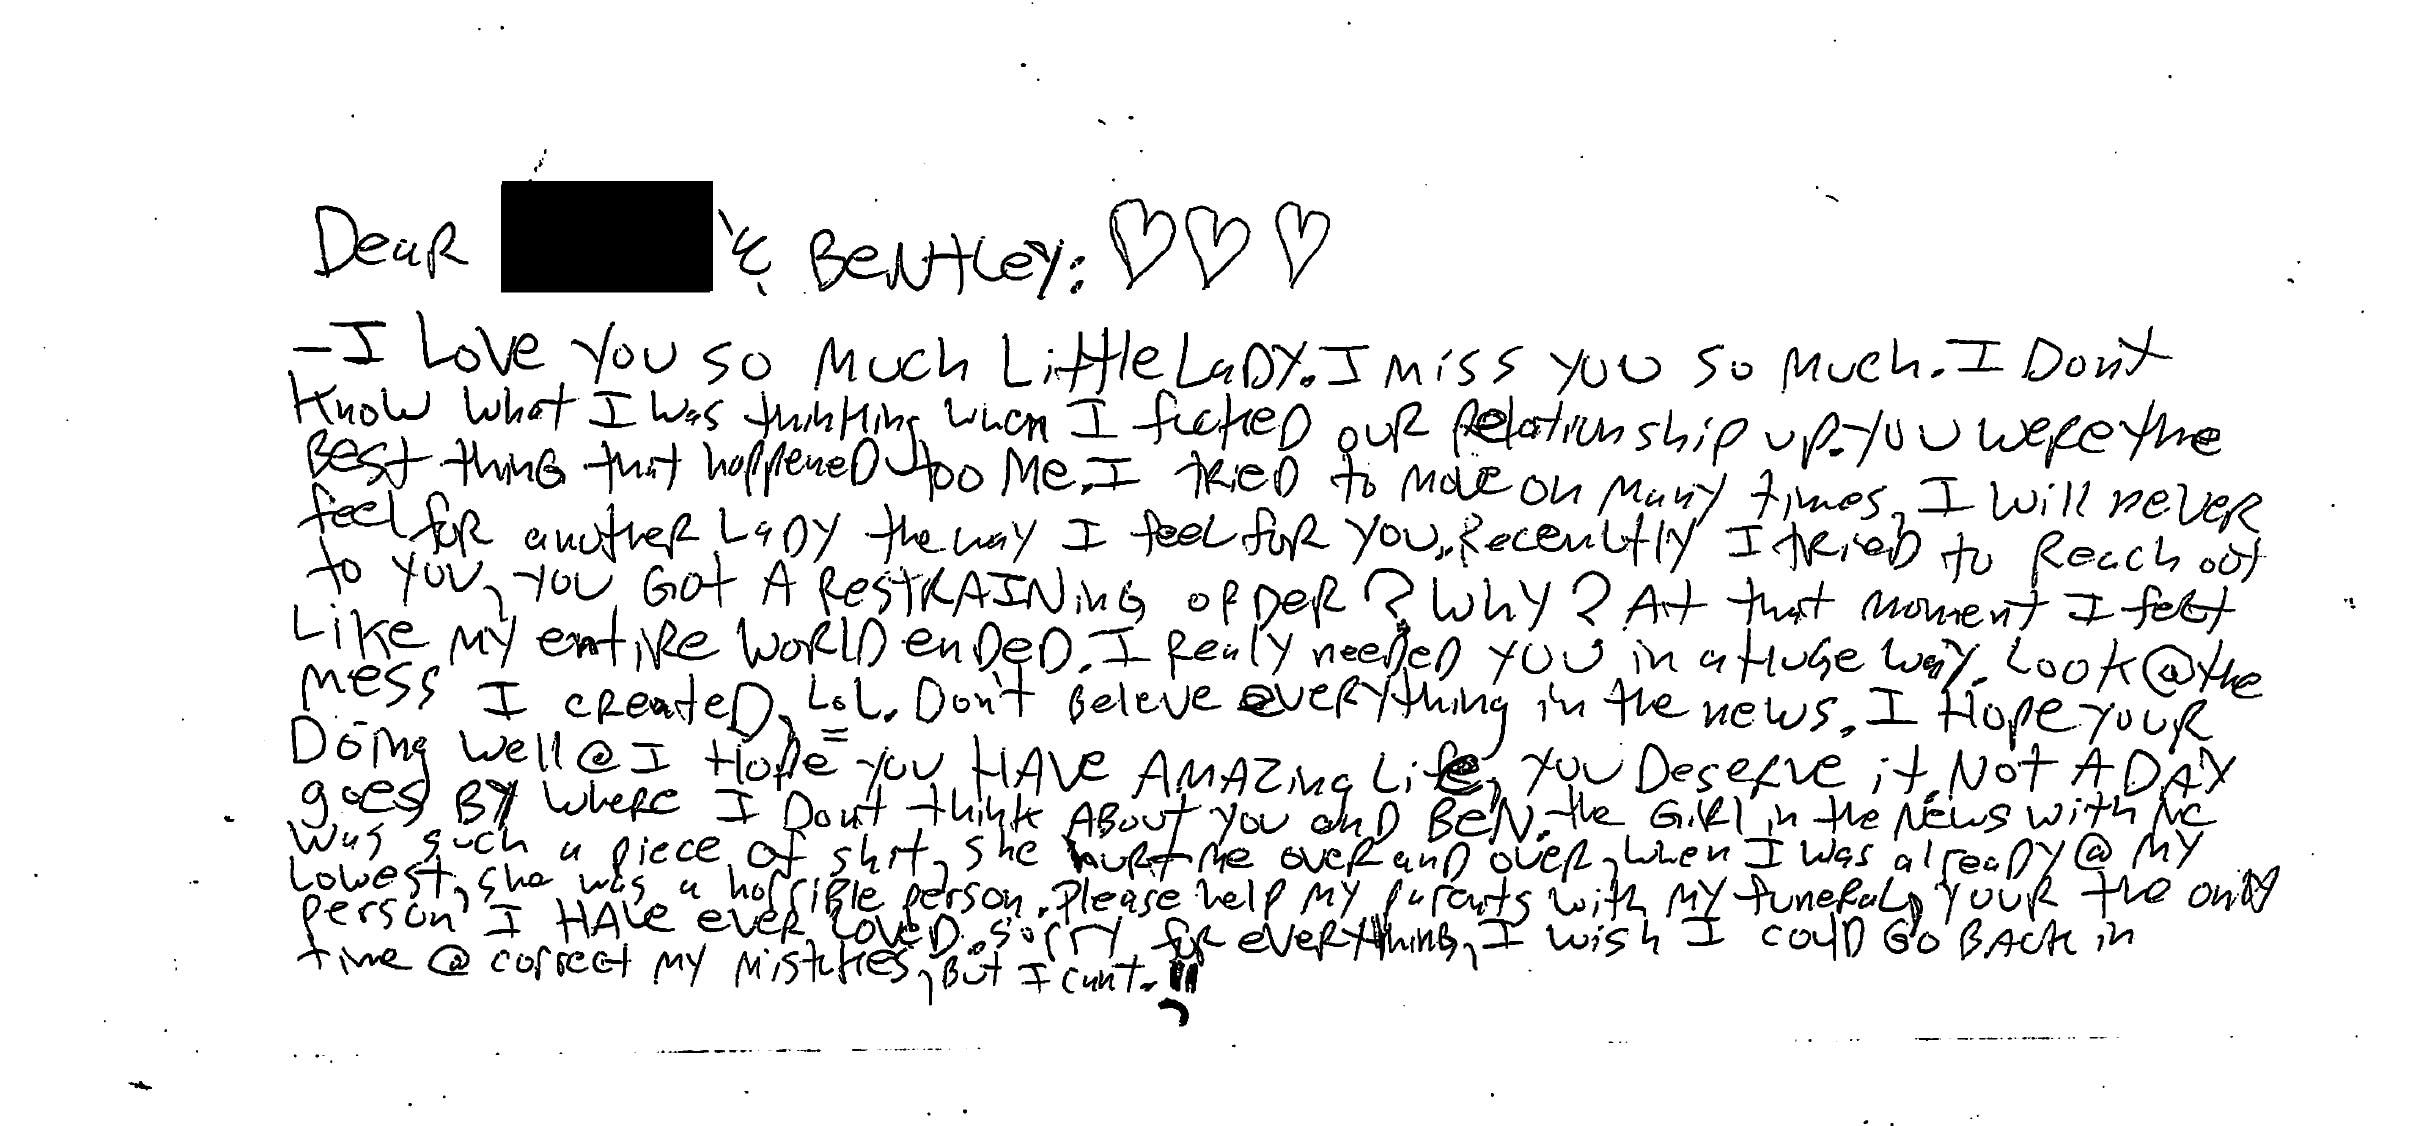 Dear & Bentley:
- I Love you so much Little Lady. I miss you so much. I Dont
know what I was thinking when I fucked our relationship up. you were the
Best thing that happened too Me. I tried to move on many times, I will never
feel for another Lady the way I feel for you. Recently I tried to Reach out
to you, you Got A RestRAINing order? Why? At that moment I felt
Like my entire world ended. I Realy needed you in a Huge way. Look @ the
mess I created, LoL. Don't Beleve everything in the news. I Hope your
Doing well @ I Hope you HAve AMAZing Life, you Deserve it. Not A DAY
goes By where I Dont think About you and BeN. the Girl in the News with Me
was such a piece of shit, she hurt me over and over, when I was already @ My
Lowest, she was a horrible person. Please help My parents with My funeral, your the only
person I HAve ever Loved. Sorry for everything, I wish I could Go BAck in
time @ correct My Mistakes, But I cant.